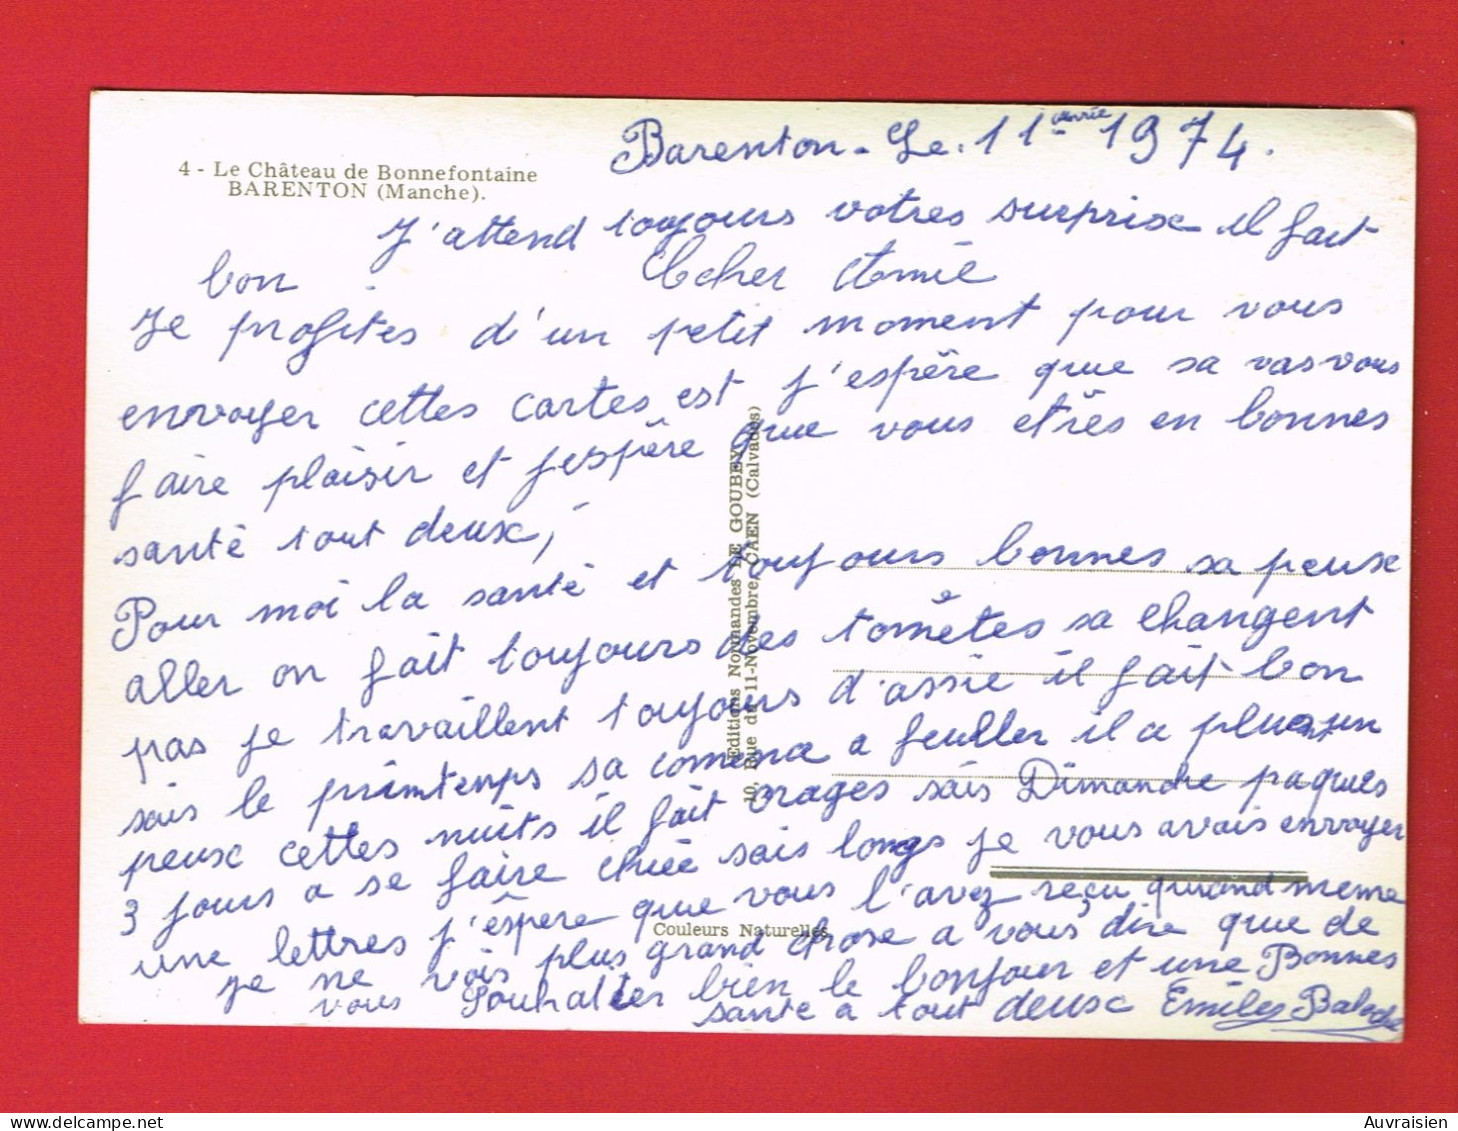 4 - Le Château de Bonnefontaine
BARENTON (Manche).
Barenton - Le. 11 1974.
J'attend toujours votres surprise il fait
bon.
cher Amie
Je profites d'un petit moment pour vous
envoyer cettes cartes est j'espêre que sa vas vous
faire plaisir et j'espêre que vous etrès en bonnes
santé tout deux,
Pour moi la santé et toujours bonnes sa peux
aller on fait toujours des tomêtes sa changent
pas je travaillent toujours d'assie il fait bon
sais le primtemps sa comença a feuller il a plus un
peux cettes nuits il fait orages sais Dimandre paques
3 jours a se faire chiée sais longs je vous avais envoyer
une lettres j'êspere que vous l'avez reçu quuand meme
je ne vois plus grand chose a vous dire que de
vous Souhaliter bien le bonjour et une Bonnes
sante a tout deux Emiles
Editions Normandes LE GOUBEY
10, Rue du 11-Novembre, CAEN (Calvados)
Couleurs Naturelles
Auvraisien